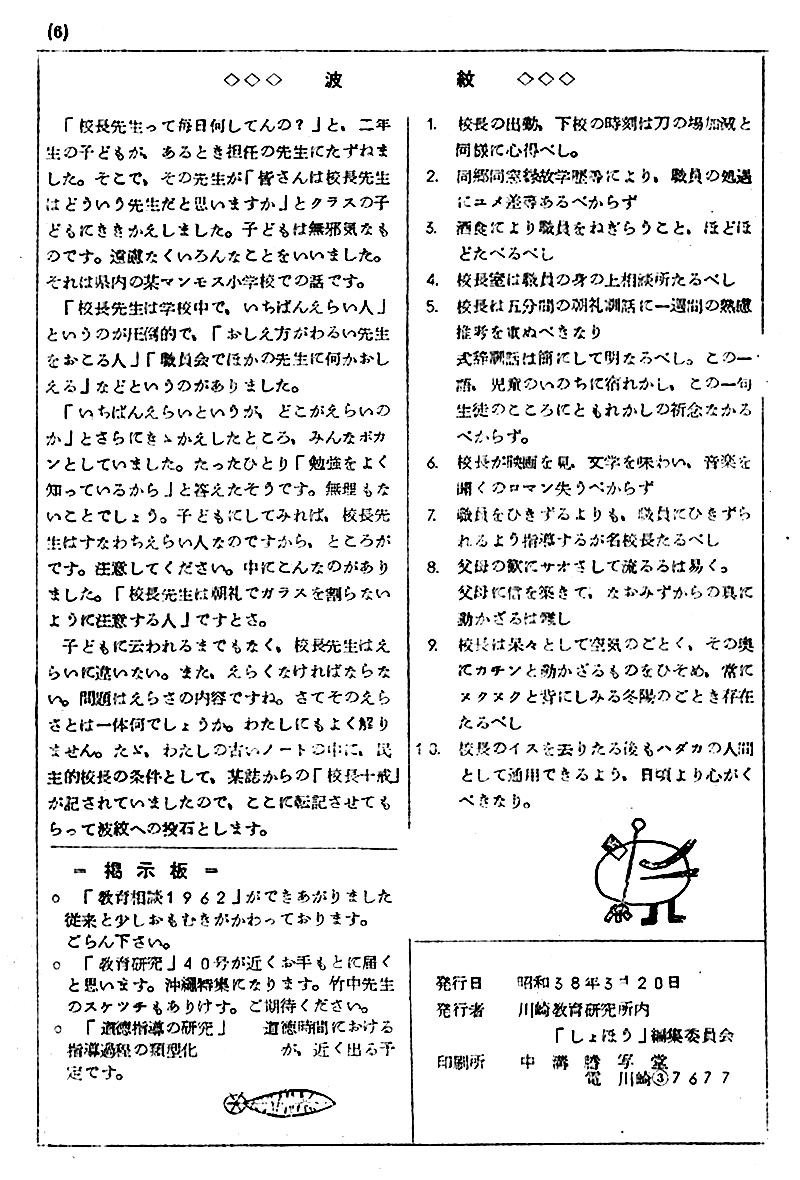 (6)
◇◇◇ 波 紋 ◇◇◇
「校長先生って毎日何してんの？」と、二年
生の子どもが、あるとき担任の先生にたずねま
した。そこで、その先生が「皆さんは校長先生
はどういう先生だと思いますか」とクラスの子
どもにききかえしました。子どもは無邪気なも
のです。遠慮なくいろんなことをいいました。
それは県内の某マンモス小学校での話です。
「校長先生は学校中で、いちばんえらい人」
というのが圧倒的で、「おしえ方がわるい先生
をおこる人」「職員会でほかの先生に何かおし
える」などというのがありました。
「いちばんえらいというが、どこがえらいの
か」とさらにきゝかえしたところ、みんなポカ
ンとしていました。たったひとり「勉強をよく
知っているから」と答えたそうです。無理もな
いことでしょう。子どもにしてみれば、校長先
生はすなわちえらい人なのですから、ところが
です。注意してください。中にこんなのがあり
ました。「校長先生は朝礼でガラスを割らない
ように注意する人」ですとさ。
子どもに云われるまでもなく、校長先生はえ
らいに違いない。また、えらくなければならな
い。問題はえらさの内容ですね。さてそのえら
さとは一体何でしょうか。わたしにもよく解り
ません。たゞ、わたしの古いノートの中に、民
主的校長の条件として、某誌からの「校長十戒」
が記されていましたので、ここに転記させても
らって波紋への投石とします。
1. 校長の出勤、下校の時刻は刀の場加減と
同様に心得べし。
2. 同郷同窓縁故学歴等により、職員の処遇
にユメ差等あるべからず
3. 酒食により職員をねぎらうこと、ほどほ
どたべるべし
4. 校長室は職員の身の上相談所たるべし
5. 校長は五分間の朝礼訓話に一週間の熟慮
推考を重ぬべきなり
式辞訓話は簡にして明なるべし。この一
語、児童のいのちに宿れかし、この一句
生徒のこころにともれかしの祈念なかる
べからず。
6. 校長が映画を見、文学を味わい、音楽を
聞くのロマン失うべからず
7. 職員をひきずるよりも、職員にひきずら
れるよう指導するが名校長たるべし
8. 父母の歓にサオさして流るるは易く。
父母に信を築きて、なおみずからの真に
動かざるは難し
9. 校長は呆々として空気のごとく、その奥
にカチンと動かざるものをひそめ、常に
ヌクヌクと背にしみる冬陽のごとき存在
たるべし
10. 校長のイスを去りたる後もハダカの人間
として通用できるよう、日頃より心がく
べきなり。
＝ 掲 示 板 ＝
○ 「教育相談1962」ができあがりました
従来と少しおもむきがかわっております。
ごらん下さい。
○ 「教育研究」40号が近くお手もとに届く
と思います。沖縄特集になります。竹中先生
のスケッチもありけす。ご期待ください。
○ 「道徳指導の研究」 道徳時間における
指導過程の類型化 が、近く出る予
定です。
発行日 昭和38年3月20日
発行者 川崎教育研究所内
「しょほう」編集委員会
印刷所 中 溝 謄 写 堂
電 川崎③7677